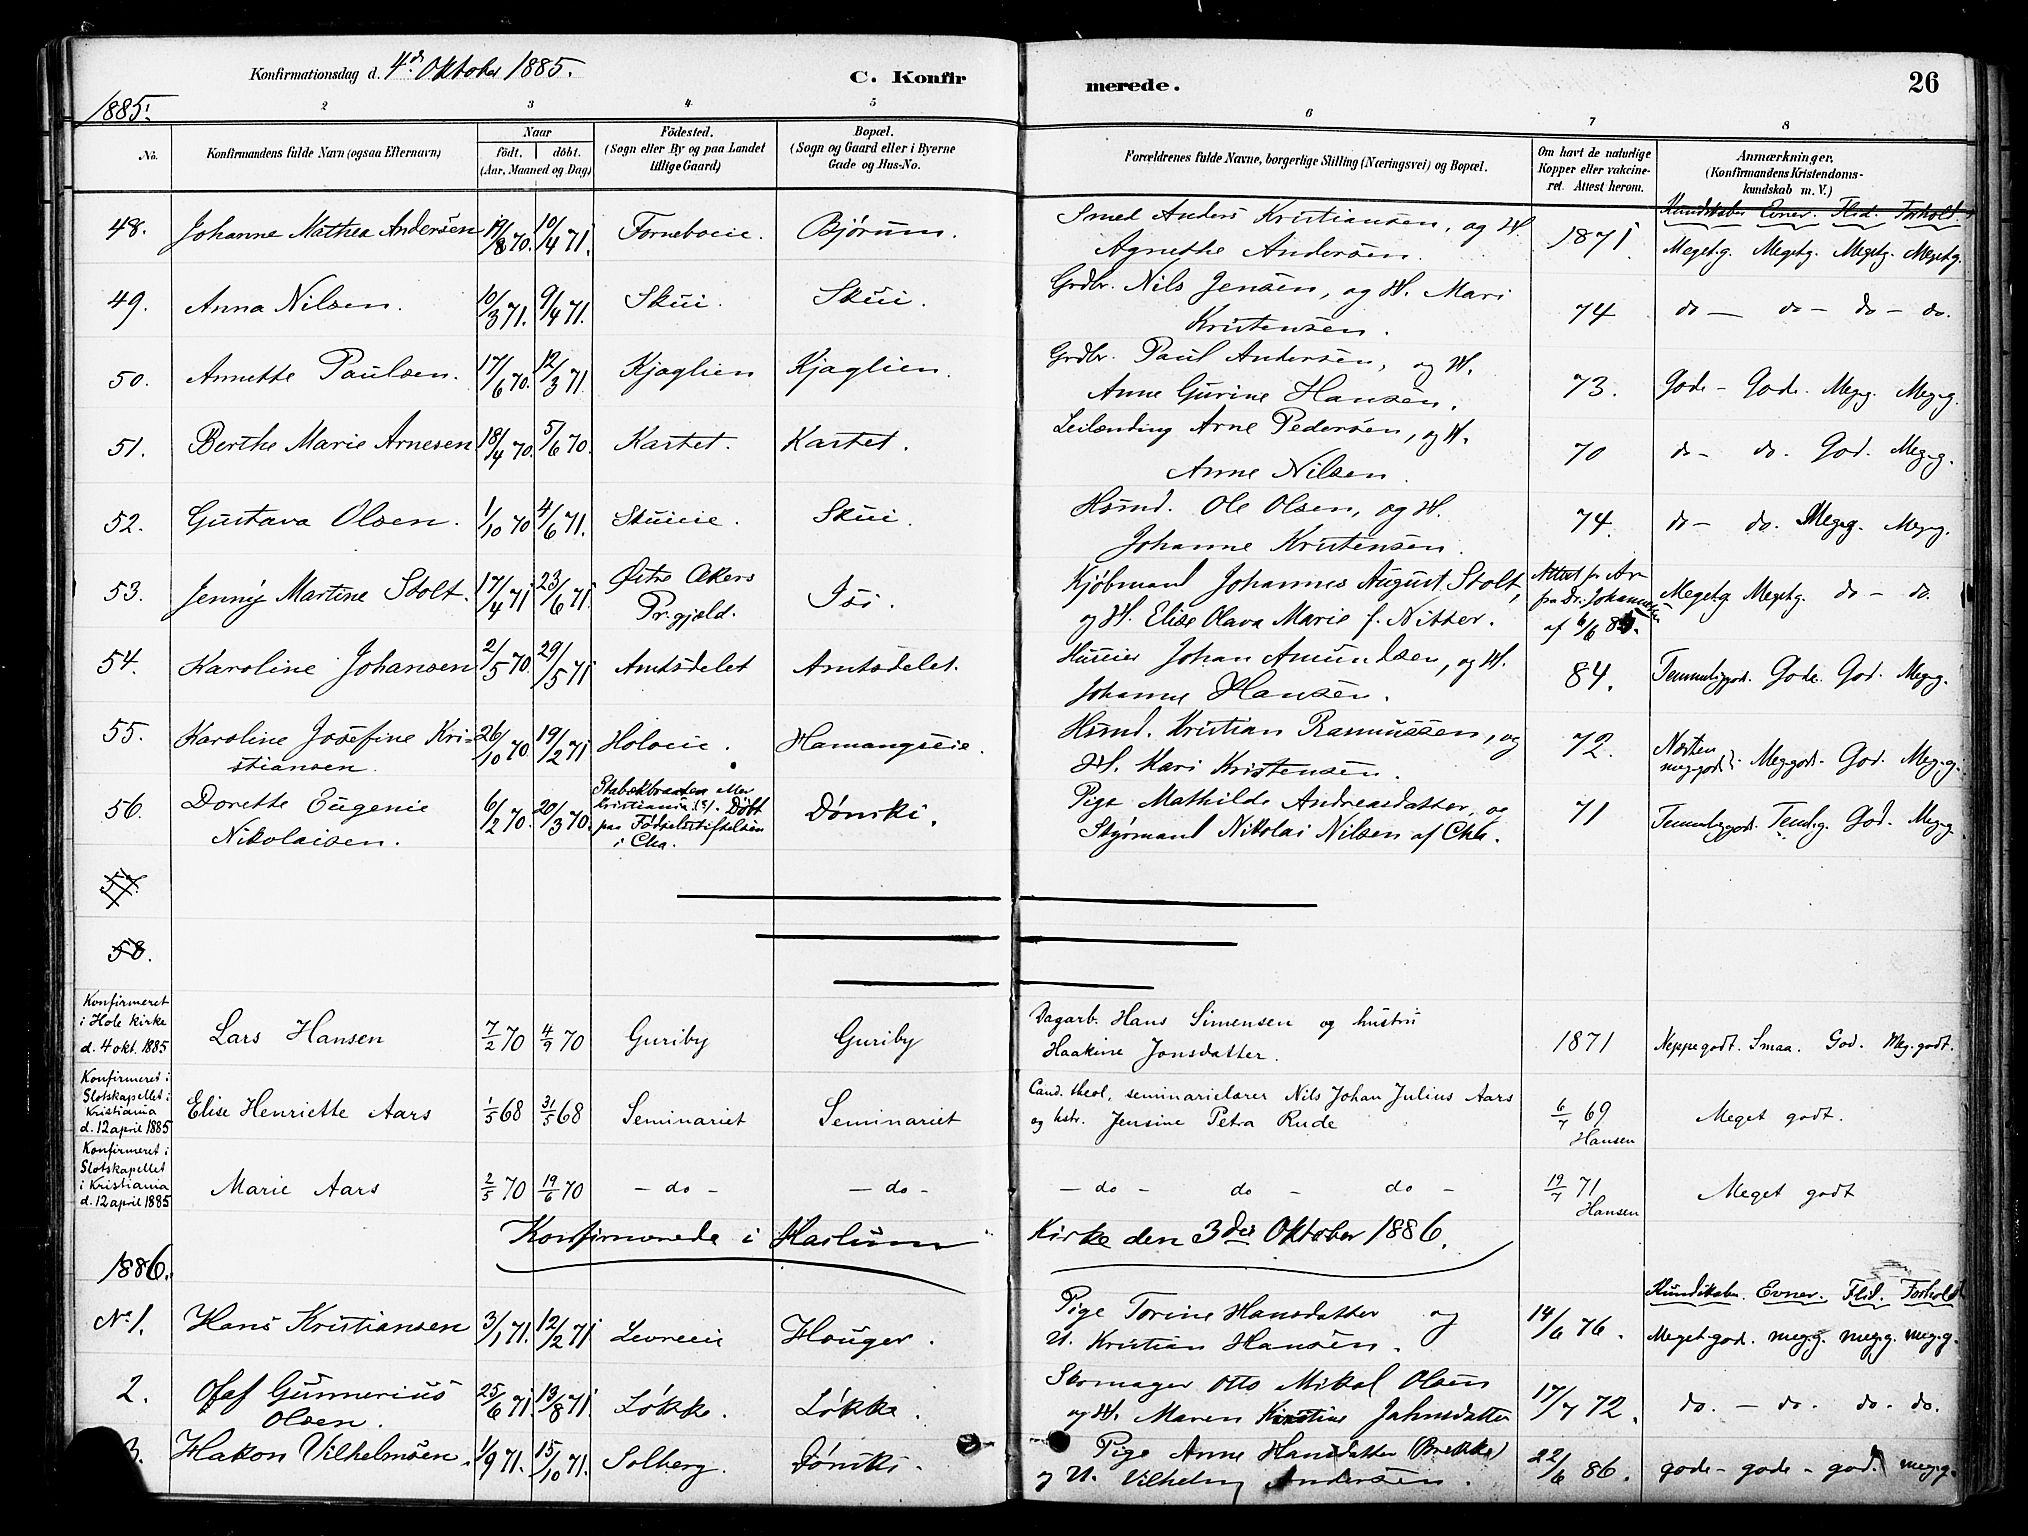 Konfirmationsdag d. 4d Oktober 1885. C. Konfirmerede. 26
1885.
2 3 4 5 6 7 8
No. Konfirmandens fulde Navn (ogsaa Efternavn) Naar født. døbt. (Aar, Maaned og Dag) Fødested. (Sogn eller By og paa Landet tillige Gaard) Bopæl. (Sogn og Gaard eller i Byerne Gade og Hus-No. Forældrenes fulde Navne, borgerlige Stilling (Næringsvei) og Bopæl. Om havt de naturlige Kopper eller vakcineret. Attest herom. Anmærkninger. (Konfirmandens Kristendomskundskab m. V.)
Kundskaber Evner. Flid. Forhold.
48. Johanne Mathea Andersen 19/8 70. 10/4 71. Forneboeie. Bjørum. Smed Anders Kristiansen, og H. Agnethe Andersen. 1871. Meget.g. Meget.g. Meget.g. Meget.g.
49. Anna Nilsen. 10/3 71. 9/4 71. Skui. Skui. Grdbr. Nils Jensen, og H. Mari Kristensen. 74 do — do — do — do.
50. Annette Paulsen. 17/6 70. 12/3 71 Kjaglien Kjaglien. Grdbr. Paul Andersen, og H. Anne Gurine Hansen. 73. Gode - Gode. Meg.g. Meg.g.
51. Berthe Marie Arnesen 18/4 70. 5/6 70. Kastet. Kastet. Leilending Arne Pedersen, og H. Anne Nilsen. 70 do - do. God. Meg.g.
52. Gustava Olsen. 1/10 70 4/6 71. Skuieie. Skui. Hsmd. Ole Olsen, og H. Johanne Kristensen. 74. do - do. Meg.g. Meg.g.
53. Jenny Martine Stolt. 17/4 71 23/6 71. Østre Akers Pr.gjeld. Isi. Kjøbmand Johannes August Stolt, og H. Elise Olava Marie f. Nitter. Attest fra Dr. Johannesen af 6/6 85. Meget.g. Meget.g. do - do.
54. Karoline Johansen 2/5 70. 29/5 71 Amtsdelet Amtsdelet. Huseier Johan Amundsen, og H. Johanne Hansen. 84. Temmeliggod. Gode. God. Meg.g.
55. Karoline Josefine Kristiansen. 26/10 70 19/2 71 Holoeie. Hamangseie. Hsmd. Kristian Rasmussen, og H. Kari Kristensen. 72. Næsten meg.god. Meg.god. God. Meg.g.
56. Dorette Eugenie Nikolaisen. 6/2 70. 20/3 70. Stabækbraaten eller Kristiania (?). Døbt paa Fødselsstiftelsen i Cha. Dønski. Pige Mathilde Andreasdatter, og Styrmand Nikolai Nilsen af Cha. 71 Temmeliggod. Teml.g. God. Meg.g.
57.
58.
Konfirmeret i Hole kirke d. 4 okt. 1885 Lars Hansen 7/2 70 4/9 70 Guriby Guriby Dagarb. Hans Simensen og hustru Haakine Jonsdatter. 1871 Neppe godt. Smaa. God. Meg. godt.
Konfirmeret i Slotskapellet i Kristiania d. 12 april 1885 Elise Henriette Aars 1/5 68 31/5 68 Seminariet Seminariet Cand. theol, seminarielærer Nils Johan Julius Aars og hstr. Jensine Petra Rude 6/7 69 Hansen Meget godt.
Konfirmeret i Slotskapellet i Kristiania d. 12 april 1885 Marie Aars 2/5 70 19/6 70 - do - - do - - do - do - do - 19/7 71 Hansen Meget godt
Konfirmerede i Haslum Kirke den 3die Oktober 1886.
1886.
Kundskaber. Evner. Flid. Forhold
No 1. Hans Kristiansen 3/1 71. 12/2 71 Levreeie Houger. Pige Torine Hansdatter og U. Kristian Hansen. 14/6 76. Meget.god. meg.g. meg.g. meg.g.
2. Olaf Gunnerius Olsen. 25/6 71. 13/8 71. Løkke. Løkke. Skomager Otto Mikal Olsen og H. Maren Kirstine Jahnsdatter 17/7 72. do. - do. do. do.
3. Hakon Vilhelmsen. 1/9 71. 15/10 71. Solberg. Dønski. Pige Anne Hansdatter (Brekke) og U. Vilhelm Andersen. 22/6 86. gode - gode - god. meg.g.